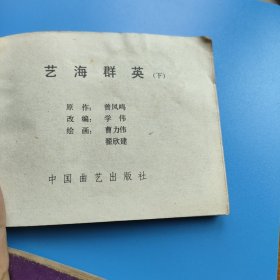 艺海群英(下)
原作：曾凤鸣
改编：学伟
绘画：曹力伟
翟欣建
中国曲艺出版社